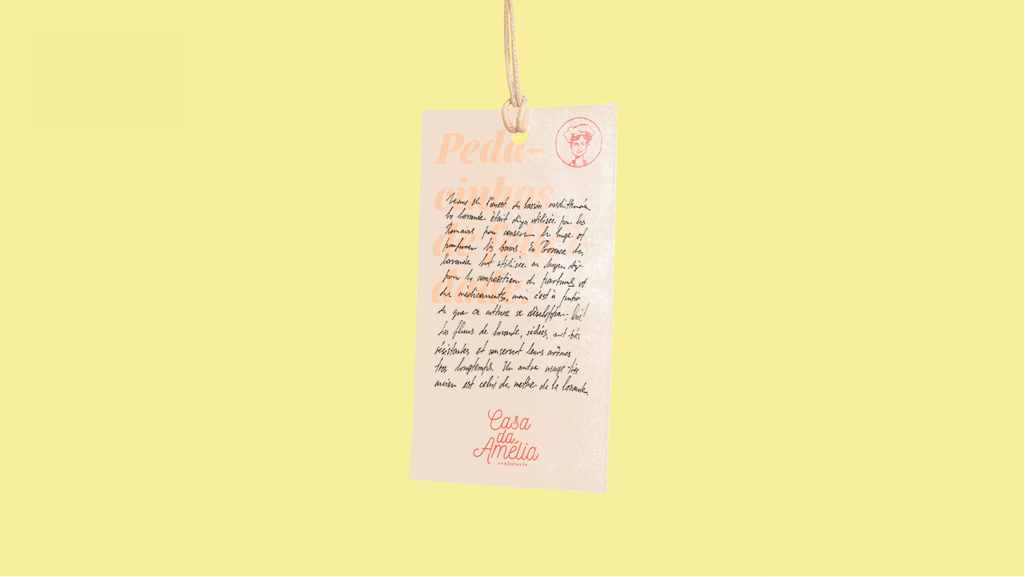 Peda-
de l'ouest du bassin
la lavande était déjà utilisée par les
Romains pour conserver le linge et
parfumer les bains. En Provence la
lavande fut utilisée au Moyen Age
pour la composition de parfums et
des médicaments, mais c'est à partir
culture se
Les fleurs de lavande, séchées, sont très
résistantes et conservent leurs arômes
très longtemps. Un autre usage très
ancien est celui de mettre de la lavande
Casa
da
Amélia
confeitaria